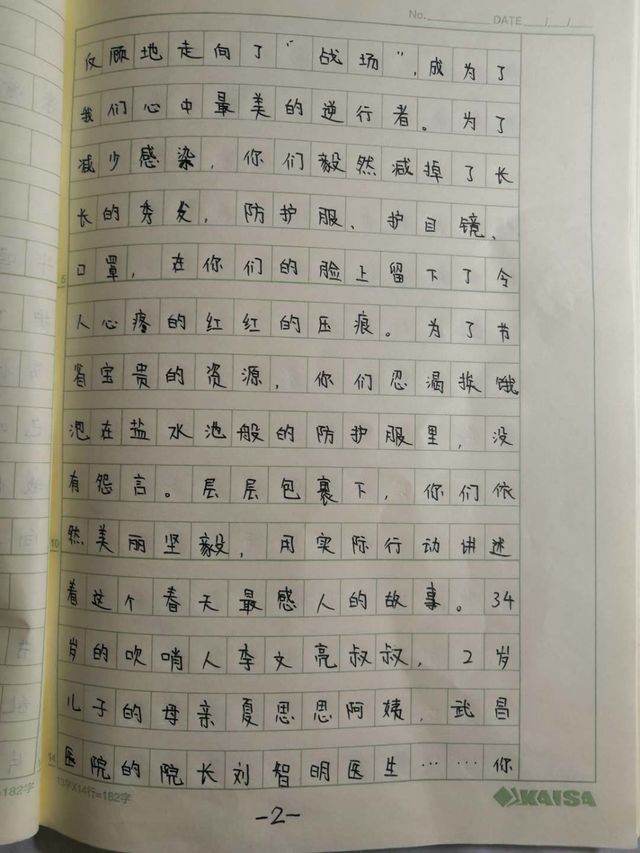 No. DATE / /
反顾地走向了“战场”，成为了
我们心中最美的逆行者。为了
减少感染，你们毅然减掉了长
长的秀发，防护服、护目镜、
口罩，在你们的脸上留下了令
人心疼的红红的压痕。为了节
省宝贵的资源，你们忍渴挨饿
泡在盐水池般的防护服里，没
有怨言。层层包裹下，你们依
然美丽坚毅，用实际行动讲述
着这个春天最感人的故事。34
岁的吹哨人李文亮叔叔，2岁
儿子的母亲夏思思阿姨，武昌
医院的院长刘智明医生……你
5
10
14
13字X14行=182字
=182字
KAISA
-2-